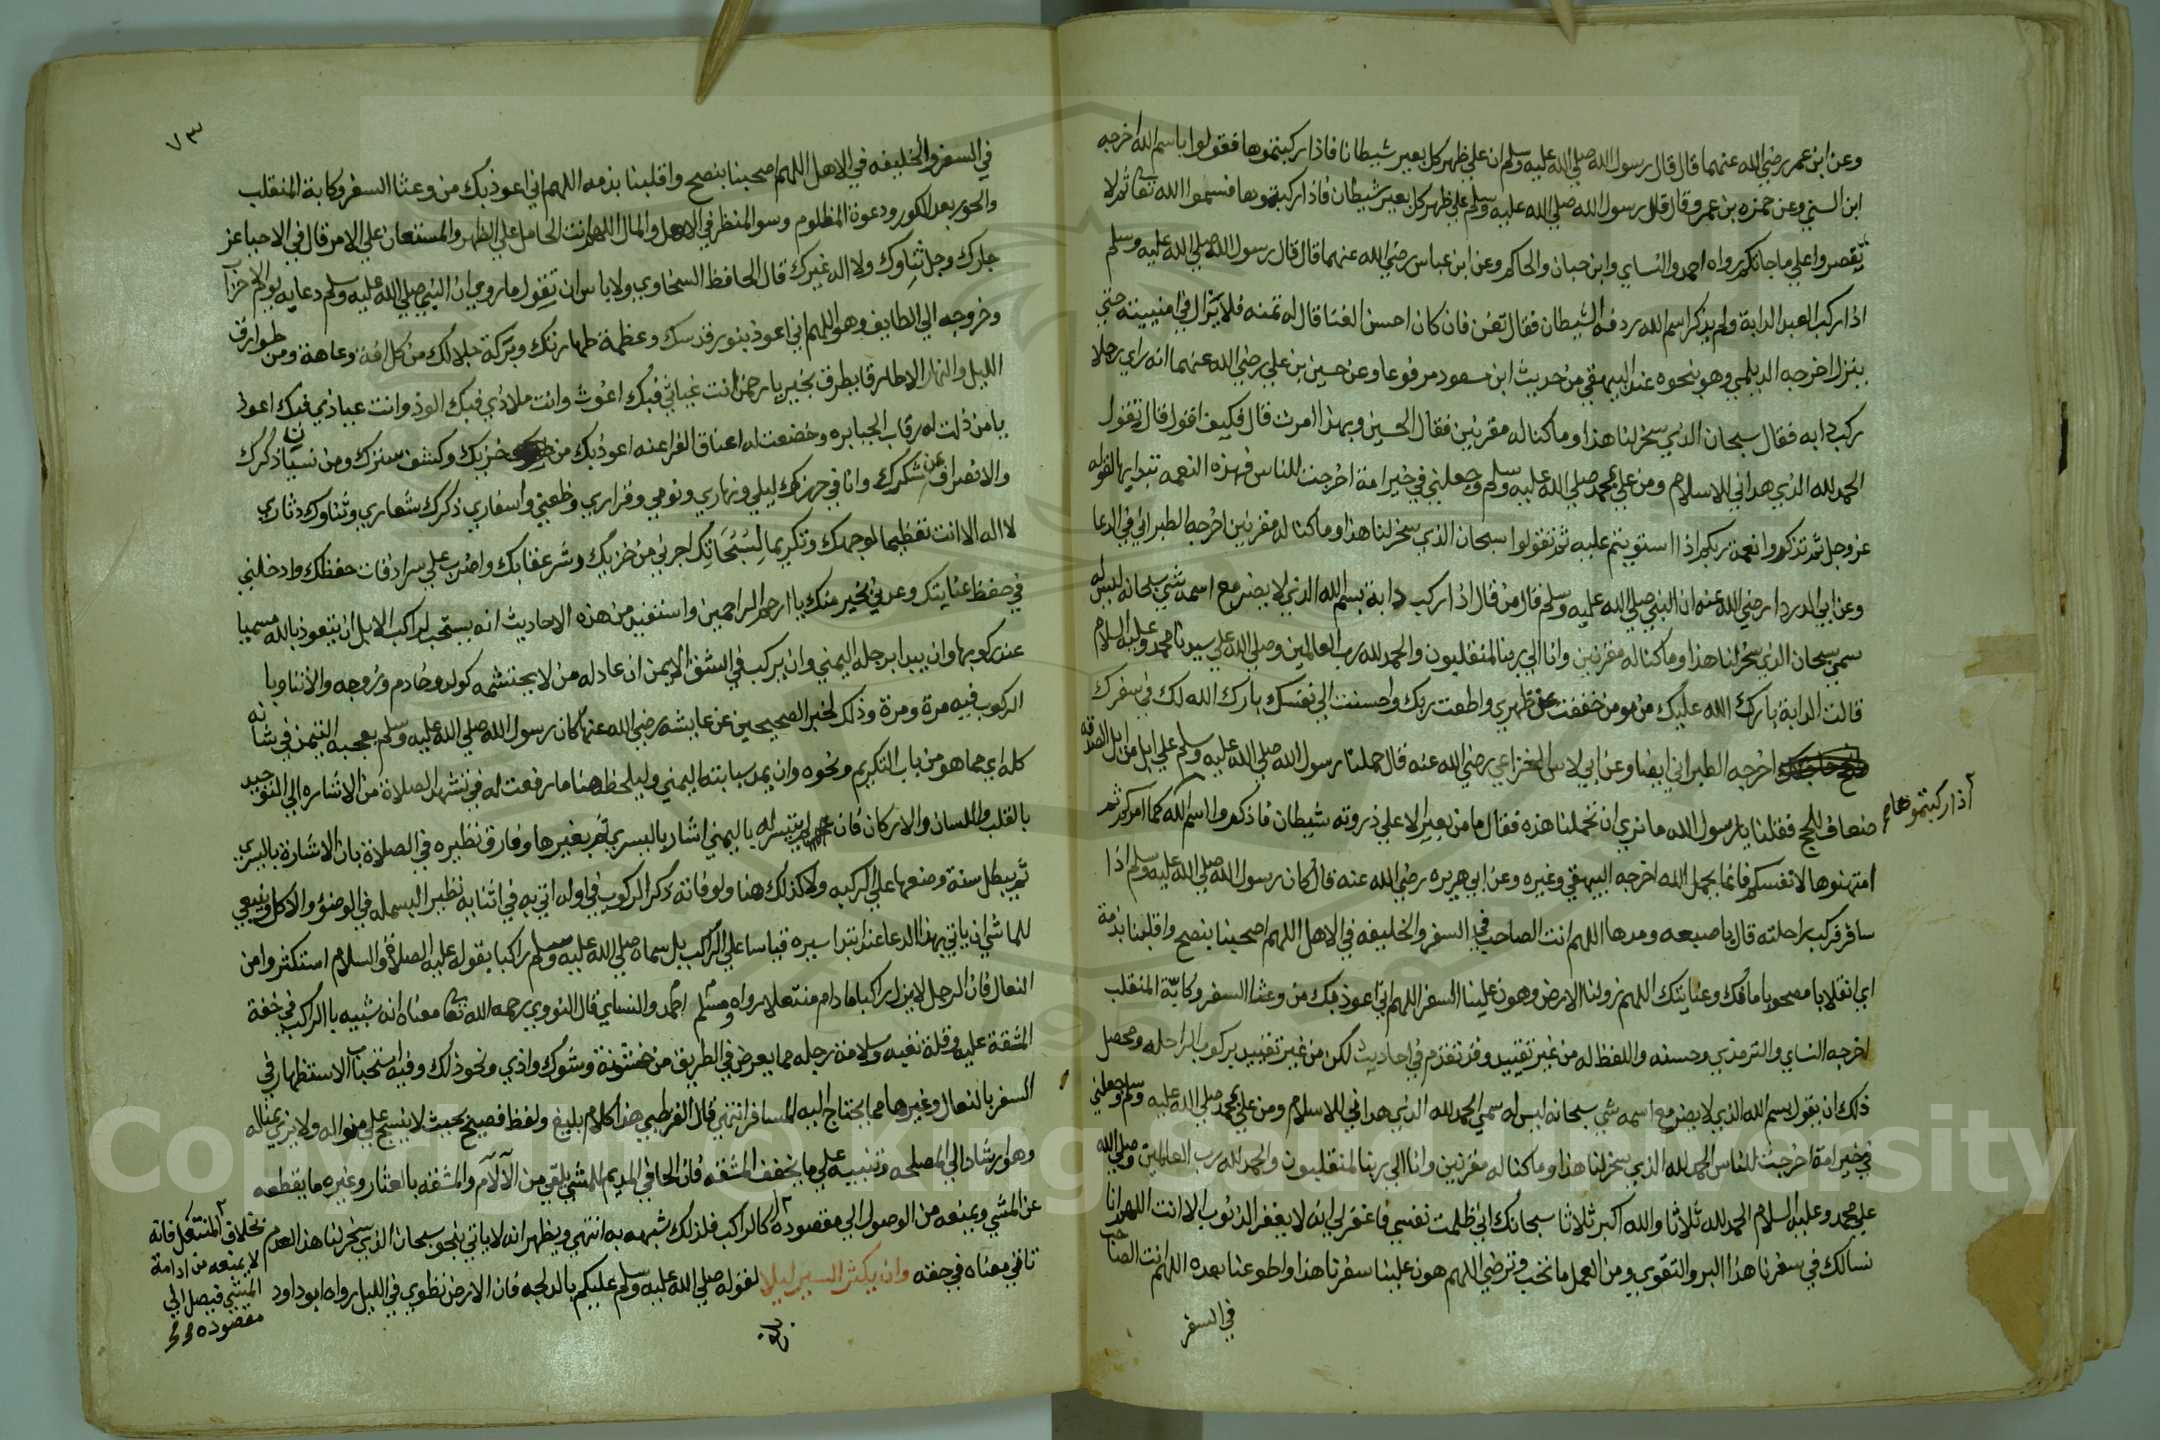 وعن ابن عمر رضي الله عنهما قال قال رسول الله صلي الله عليه وسلم ان علي ظهر كل بعير شيطانا فاذا ركبتموها فقولوا باسم الله اخرجه
ابن السني وعن حمزه بن عمرو قال قال رسول الله صلي الله عليه وسلم علي ظهر كل بعير شيطان فاذا ركبتموها فسموا الله تعا ثم لا
تقصروا علي حاجاتكم رواه احمد والنساي وابن حبان والحاكم وعن ابن عباس رضي الله عنهما قال قال رسول الله صلي الله عليه وسلم
اذا ركب العبد الدابة ولم يذكر اسم الله ردفه الشيطان فقال تغن فان كان احسن الغنا قال له تمنه فلا يزال في امنيته حتي
ينزل اخرجه الديلمي وهو بنحوه عند البيهقي من حديث ابن مسعود مرفوعا وعن حسين بن علي رضي الله عنهما انه راي رجلا
ركب دابه فقال سبحان الذي سخر لنا هذا وما كنا له مقرنين فقال الحسين وبهذا امرت قال فكيف اقول قال تقول
الحمد لله الذي هداني للاسلام ومن علي بمحمد صلي الله عليه وسلم وجعلني في خير امة اخرجت للناس فهذه النعمه تبدا بها لقوله
عز وجل ثم تذكروا نعمة ربكم اذا استويتم عليه ثم تقولوا سبحان الذي سخر لنا هذا وما كنا له مقرنين اخرجه الطبراني في الدعا
وعن ابي الدردا رضي الله عنه ان النبي صلي الله عليه وسلم قال من قال اذا ركب دابة بسم الله الذي لا يضر مع اسمه شي سبحانه ليس له
سمي سبحان الذي سخر لنا هذا وما كنا له مقرنين وانا الي ربنا لمنقلبون والحمد لله رب العالمين وصلي الله علي سيدنا محمد وعليه السلام
قالت الدابة بارك الله عليك من مومن خففت عن ظهري واطعت ربك واحسنت الي نفسك بارك الله لك في سفرك
اخرجه الطبراني ايضا وعن ابي لاس الخزاعي رضي الله عنه قال حملنا رسول الله صلي الله عليه وسلم علي ابل من ابل الصدقه
ضعاف للحج فقلنا يا رسول الله ما نري ان تحملنا هذه فقال ما من بعير الا علي ذروته شيطان فاذكروا اسم الله كما امركم ثم
اذا ركبتموها
امتهنوها لانفسكم فانما يحمل الله اخرجه البيهقي وغيره وعن ابي هريره رضي الله عنه قال كان رسول الله صلي الله عليه وسلم اذا
سافر فركب راحلته قال باصبعه ومدها اللهم انت الصاحب في السفر والخليفه في الاهل اللهم اصحبنا بنصح واقلبنا بذمة
اي انقلابا مصحوبا مانك وعنايتك اللهم زو لنا الارض وهون علينا السفر اللهم اني اعوذ بك من وعثا السفر وكابة المنقلب
اخرجه النساي والترمذي وحسنه واللفظ له من غير تقييد وقد تقدم في احاديث لكن من غير تقييد بركوب الراحله ومحصل
ذلك ان يقول بسم الله الذي لا يضر مع اسمه شي سبحانه ليس له سمي الحمد لله الذي هداني للاسلام ومن علي بمحمد صلي الله عليه وسلم وجعلني
في خير امة اخرجت للناس الحمد لله الذي سخر لنا هذا وما كنا له مقرنين وانا الي ربنا لمنقلبون والحمد لله رب العالمين وصلي الله
علي محمد وعليه السلام الحمد لله ثلاثا والله اكبر ثلاثا سبحانك اني ظلمت نفسي فاغفر لي انه لا يغفر الذنوب الا انت اللهم انا
نسالك في سفرنا هذا البر والتقوي ومن العمل ما تحب وترضي اللهم هون علينا سفرنا هذا واطو عنا بعده اللهم انت الصاحب
في السفر
٧٣
في السفر والخليفه في الاهل اللهم اصحبنا بنصح واقلبنا بذمه اللهم اني اعوذ بك من وعثا السفر وكابة المنقلب
والحور بعد الكور ودعوة المظلوم وسو المنظر في الاهل والمال اللهم انت الحامل علي الظهر والمستعان علي الامر قال في الاحيا عز
جارك وجل ثناوك ولا اله غيرك قال الحافظ السخاوي ولا باس ان تقول ما روي ان النبي صلي الله عليه وسلم دعا به يوم الاحزاب
وخروجه الي الطايف وهو اللهم اني اعوذ بنور قدسك وعظمة طهارتك وبركة جلالك من كل افة وعاهة ومن طوارق
الليل والنهار الا طارقا يطرق بخير يا رحمن انت غياثي فبك اغوث وانت ملاذي فبك الوذ وانت عياذي فبك اعوذ
يا من ذلت له رقاب الجبابره وخضعت له اعناق الفراعنه اعوذ بك من خزيك وكشف سترك ومن نسيان ذكرك
والانصراف عن شكرك وانا في حرزك ليلي ونهاري ونومي وقراري وظعني واسفاري ذكرك شعاري وثناوك دثاري
لا اله الا انت تعظيما لوجهك وتكريما لسبحاتك اجرني من خزيك وشر عقابك واضرب علي سرادقات حفظك وادخلني
في حفظ عنايتك وعد لي بخير منك يا ارحم الراحمين واستفيد من هذه الاحاديث انه يستحب لراكب الابل ان يتعوذ بالله مسميا
عند ركوبها وان يبدا برجله اليمني وان يركب في الشق الايمن ان عادله من لا يحتشمه كولد وخادم وزوجه والا تناوبا
الركوب فيه مرة ومرة وذلك لخبر الصحيحين عن عايشه رضي الله عنها كان رسول الله صلي الله عليه وسلم يعجبه التيمن في شانه
كله اي مما هو من باب التكريم ونحوه وان يمد سبابته اليمني وليلحظ هنا ما رفعت له في تشهد الصلاة من الاشاره الي التوحيد
بالقلب واللسان والاركان فان لم يتيسر له باليمني اشار باليسري ثم بغيرها وفارق نظيره في الصلاة بان الاشارة باليسري
ثم يبطل سنة وضعها علي الركبه ولا كذلك هنا ولو فاته ذكر الركوب في اوله اتي به في اثنايه نظير البسمله في الوضو والاكل وينبغي
للماشي ان ياتي بهذا الدعا عند ابتدا سيره قياسا علي الراكب بل سماه صلي الله عليه وسلم راكبا بقوله عليه الصلاة والسلام استكثروا من
النعال فان الرجل لا يزال راكبا ما دام منتعلا رواه مسلم واحمد والنساي قال النووي رحمه الله تعا معناه انه شبيه بالراكب في خفة
المشقة عليه وقلة تعبه وسلامة رجله مما يعرض في الطريق من خشونة وشوك واذي ونحو ذلك وفيه استحباب الاستظهار في
السفر بالنعال وغيرها مما يحتاج اليه المسافر انتهي قال القرطبي هذا كلام بليغ ولفظ فصيح بحيث لا ينسج علي منواله ولا يري بمثاله
وهو ارشاد الي المصلحه وتنبيه علي ما يخفف المشقه فان الحافي المديم للمشي يلقي من الآلام والمشقه بالعثار وغيره ما يقطعه
عن المشي ويمنعه من الوصول الي مقصوده كالراكب فلذلك شبهه به انتهي ويظهر انه لا ياتي بنحو سبحان الذي سخر لنا هذا لعدم
بخلاف المنتعل فانه
لا يمنعه من ادامة
المشي فيصل الي
مقصوده
تاتي معناه في حقه وان يكثر السير ليلا لقوله صلي الله عليه وسلم عليكم بالدلجه فان الارض تطوي في الليل رواه ابو داود
Copyright © King Saud University
1957